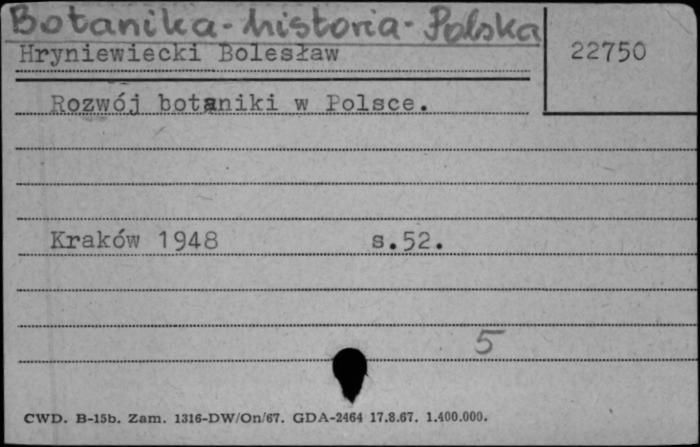 Botanika-historia-Polska
Hryniewiecki Bolesław
22750
Rozwój botaniki w Polsce.
Kraków 1948 s.52.
5
CWD. B-15b. Zam. 1316-DW/On/67. GDA-2464 17.8.67. 1.400.000.